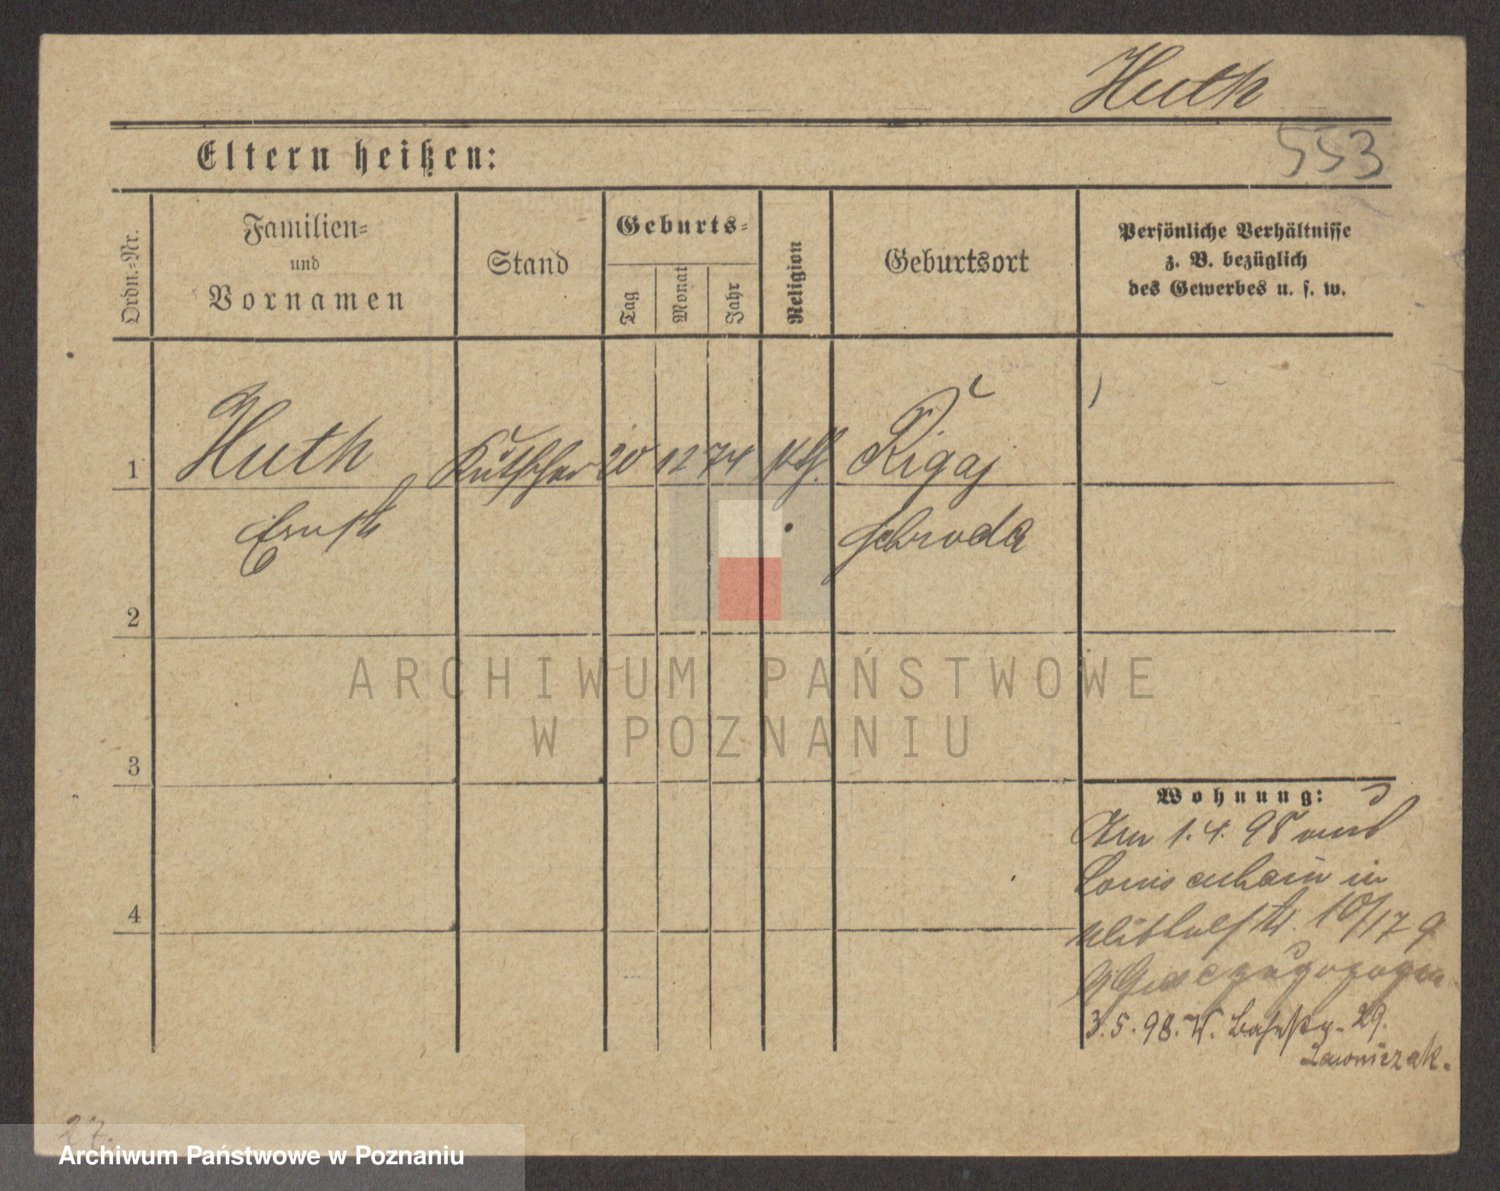 Huth
553
Eltern heißen:
Ordn.-Nr.
Familien-
und
Vornamen
Stand
Geburts-
Tag
Monat
Jahr
Religion
Geburtsort
Persönliche Verhältnisse
z. B. bezüglich
des Gewerbes u. s. w.
1
Huth
Kutscher
20
12
74
kth.
Rigaj
Ernst
Schroda
2
ARCHIWUM PAŃSTWOWE
W POZNANIU
3
Wohnung:
Am 1.4.98 aus
Louisenhain in
10/17
4
zugezogen
3.5.98. W. 29.
Lawniczak.
27.
Archiwum Państwowe w Poznaniu